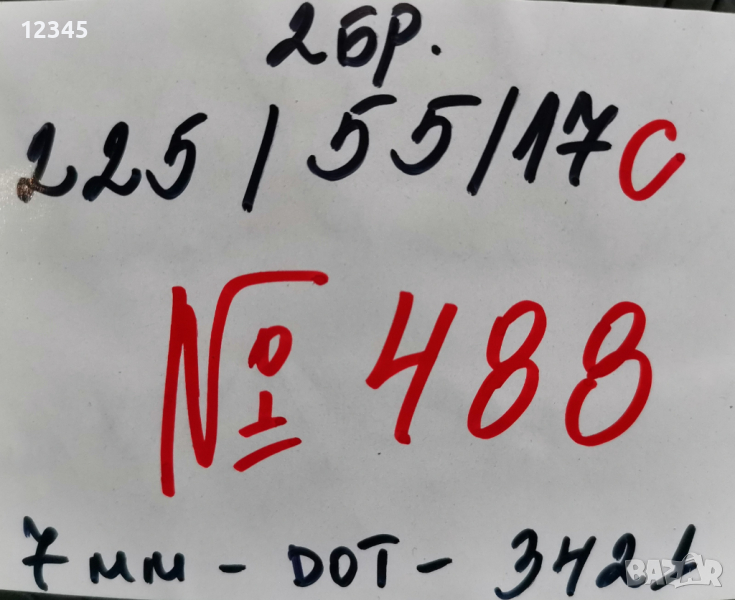 12345
2 БР.
225 / 55 / 17 C
№ 488
7 мм - DOT - 3421
BAZAR